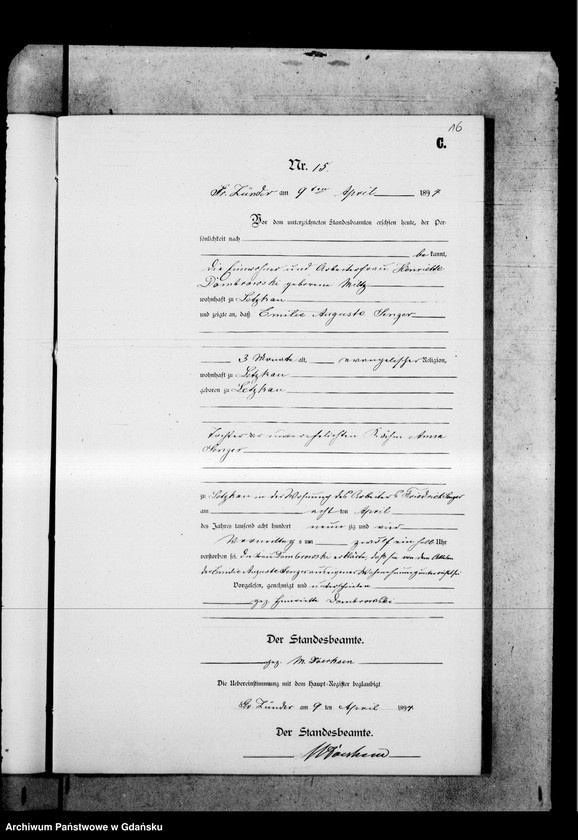 16
C.
Nr. 15.
Gr. Zünder am 9ten April 1894
Vor dem unterzeichneten Standesbeamten erschien heute, der Per-
sönlichkeit nach
bekannt,
die Einwohner und Arbeiterfrau Henriette
Dombrowski geborene
wohnhaft zu Letzkau
und zeigte an, daß Emilie Auguste Senger
3 Monate alt, evangelischer Religion,
wohnhaft zu Letzkau
geboren zu Letzkau
Tochter der unverehelichten Anna
Senger
zu Letzkau in der Wohnung des Arbeiters Friedrich
am acht ten April
des Jahres tausend acht hundert neunzig und vier
Vormittags um zwölf einhalb Uhr
verstorben sei. Die Frau Dombrowski erklärte, daß sie von dem Ableben
der Emilie Auguste Senger aus eigener Wahrnehmung unterrichtet sei
Vorgelesen, genehmigt und unterschrieben
gez. Henriette Dombrowski
Der Standesbeamte.
gez. M. Doerksen
Die Uebereinstimmung mit dem Haupt-Register beglaubigt
Gr. Zünder am 9 ten April 1894
Der Standesbeamte.
MDoerksen
Archiwum Państwowe w Gdańsku